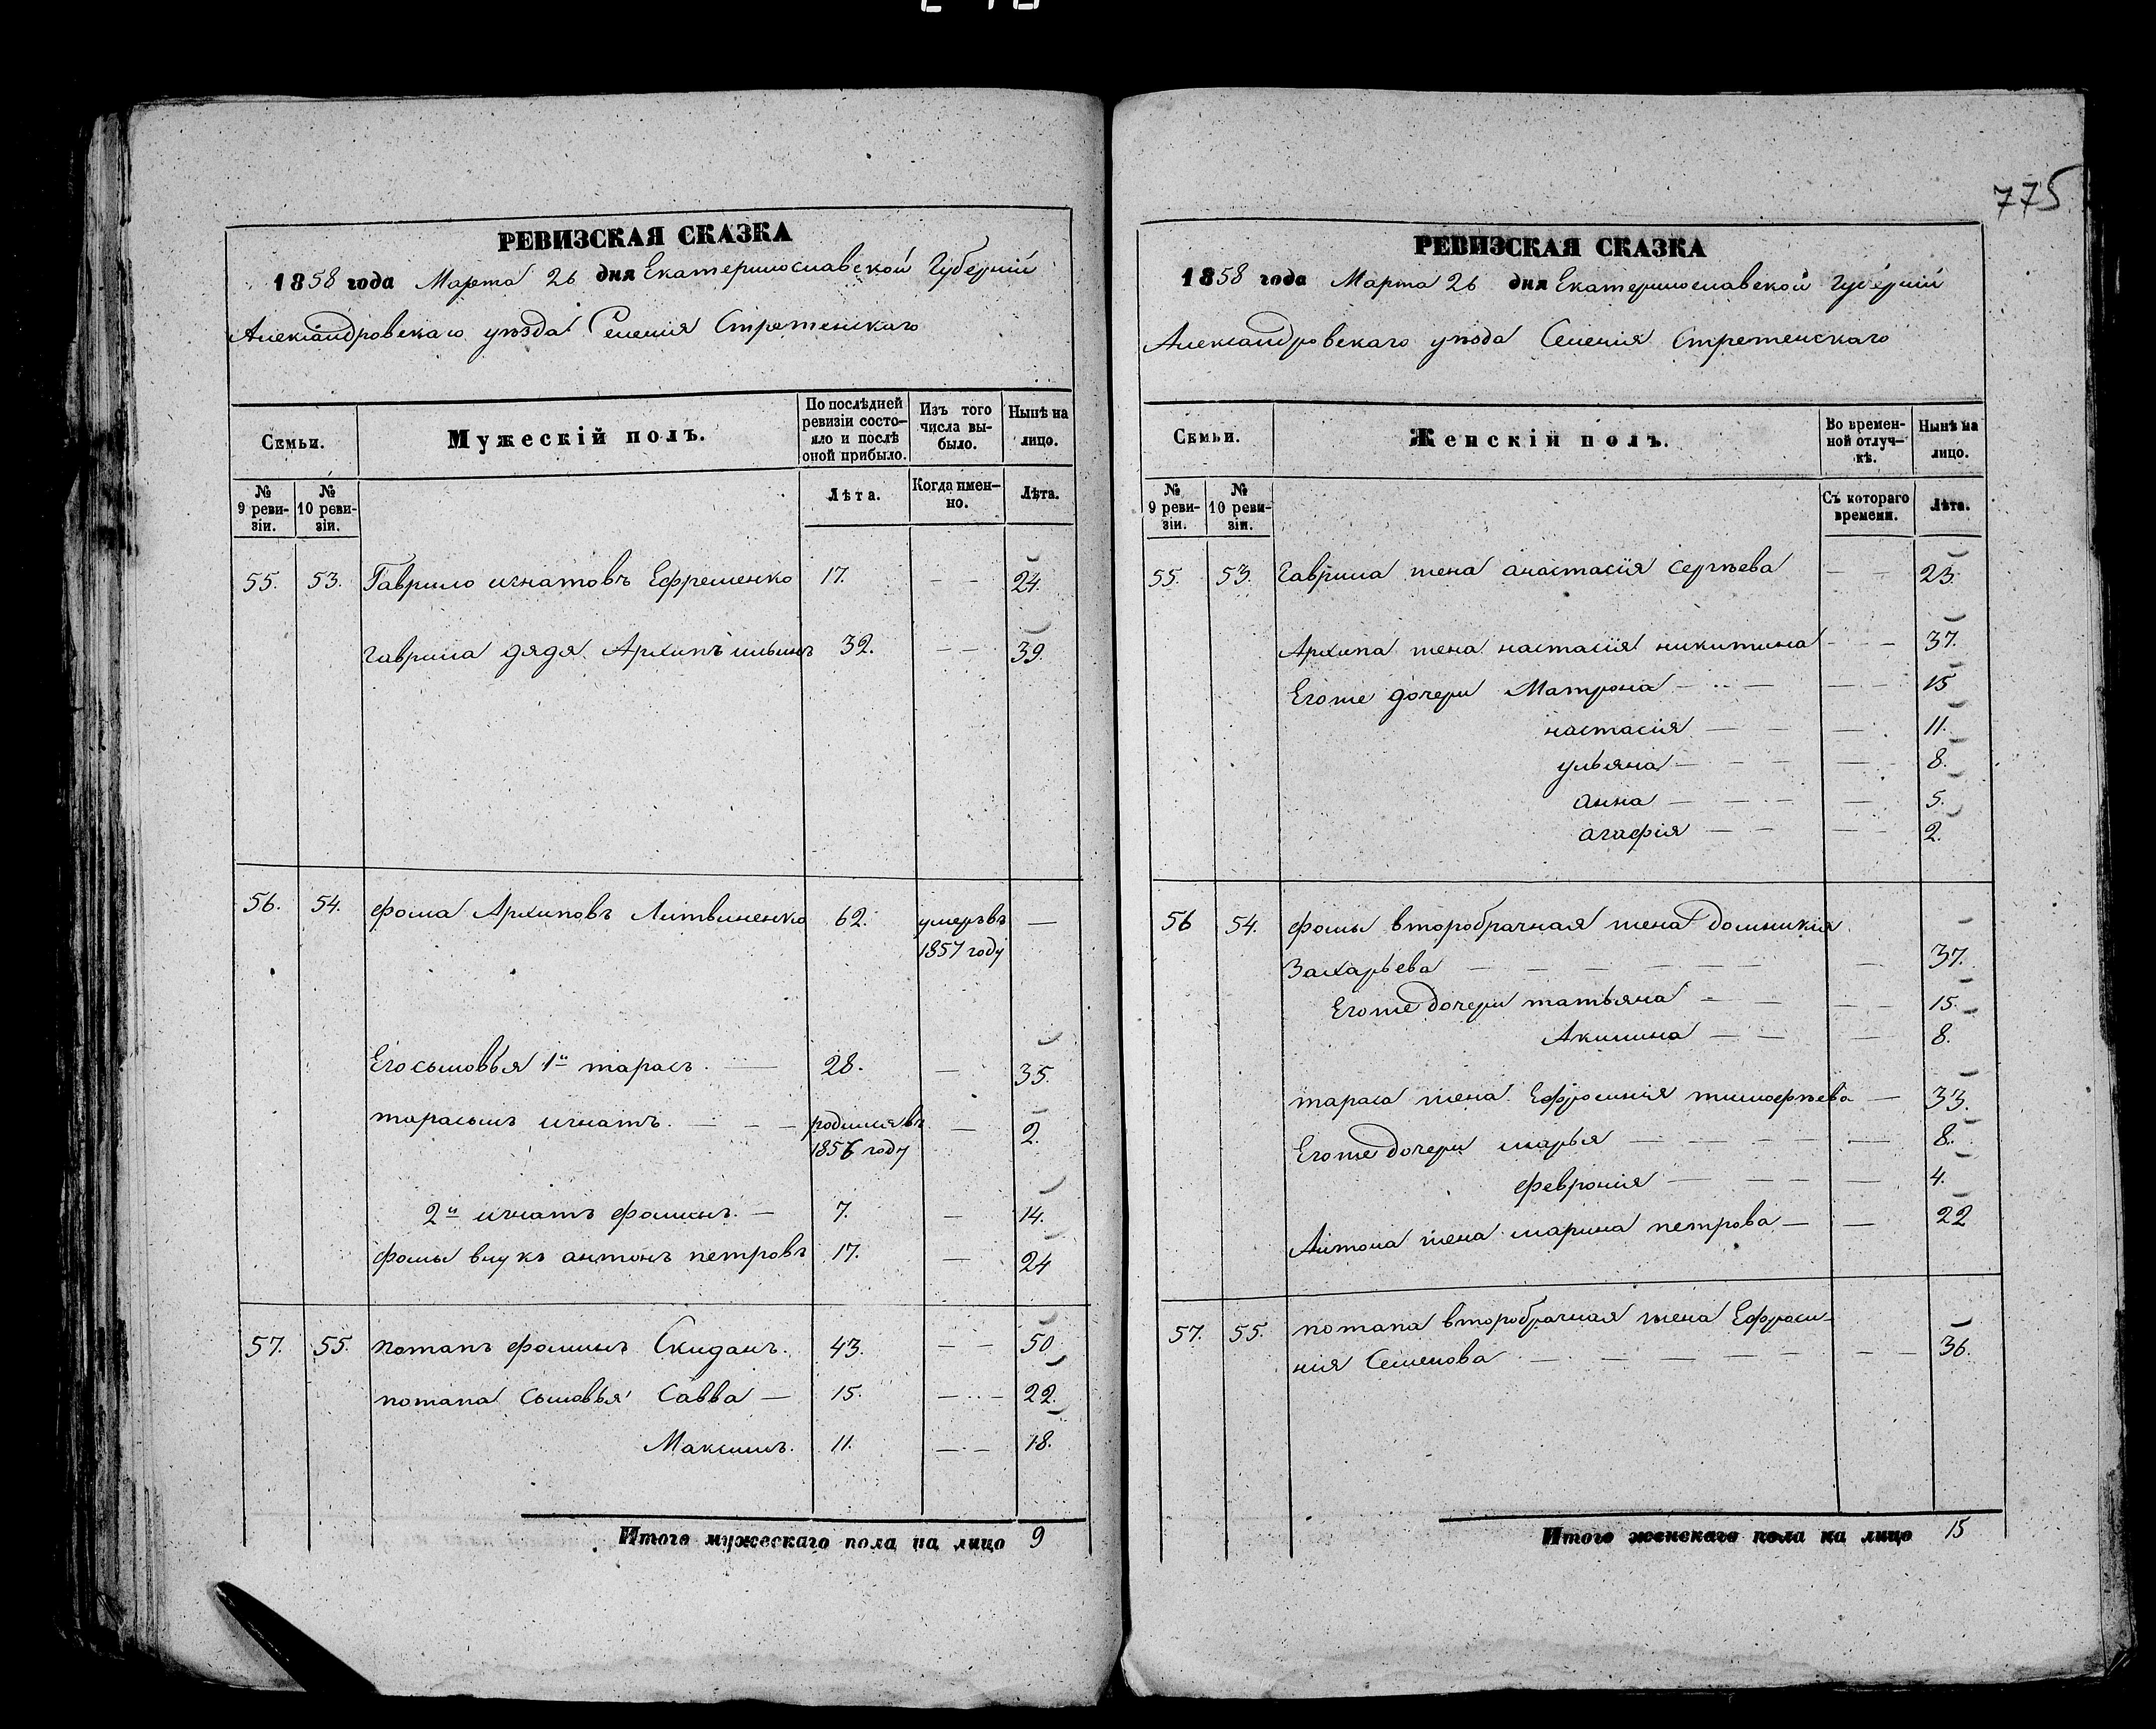 775
РЕВИЗСКАЯ СКАЗКА
1858 года Марта 26 дня Екатеринославской Губерніи
Александровскаго уѣзда Селенія Стретенскаго
Семьи.
Мужескій полъ.
По послѣдней ревизіи состояло и послѣ оной прибыло.
Изъ того числа выбыло.
Нынѣ на лицо.
№ 9 ревизіи.
№ 10 ревизіи.
Лѣта.
Когда именно.
Лѣта.
55. 53. Гаврило игнатовъ Ефременко 17. — — 24.
гаврила дядя Архипъ ильинъ 32. — — 39.
56. 54. фома Архиповъ Литвиненко 62. умеръ въ —
1857 году
Его сыновья 1й тарасъ. — 28. — 35.
тарасынъ игнатъ. — — — родился въ — 2.
1856 году
2й игнатъ фоминъ. — 7. — 14.
фомы внукъ антонъ петровъ 17. — 24
57. 55. потапъ фоминъ Скиданъ. 43. — — 50
потапа сыновья Савва — 15. — — 22.
Максимъ. 11. — — 18.
Итого мужескаго пола на лицо 9
РЕВИЗСКАЯ СКАЗКА
1858 года Марта 26 дня Екатеринославской Губерніи
Александровскаго уѣзда Селенія Стретенскаго
Семьи.
Женскій полъ.
Во временной отлучкѣ.
Нынѣ на лицо.
№ 9 ревизіи.
№ 10 ревизіи.
Съ котораго времени.
Лѣта.
55. 53. гаврила жена анастасія сергѣева — — 23.
Архипа жена настасія никитина — — 37.
Егоже дочери Матрона — — — — 15
настасія — — — 11.
ульяна — — — — 8.
анна — — — — 5.
агафія — — — — 2.
56 54. фомы второбрачная жена домникія
Захарьева — — — — — — 37.
Егоже дочери татьяна — — — — 15.
Акилина — — — 8.
тараса жена Ефросинія тимофѣева — 33.
Егоже дочери марья — — — — — 8.
феврония — — — — 4.
Антона жена марина петрова — — 22
57. 55. потапа второбрачная жена Ефроси-
нія Семенова — — — — — — — 36.
Итого женскаго пола на лицо 15